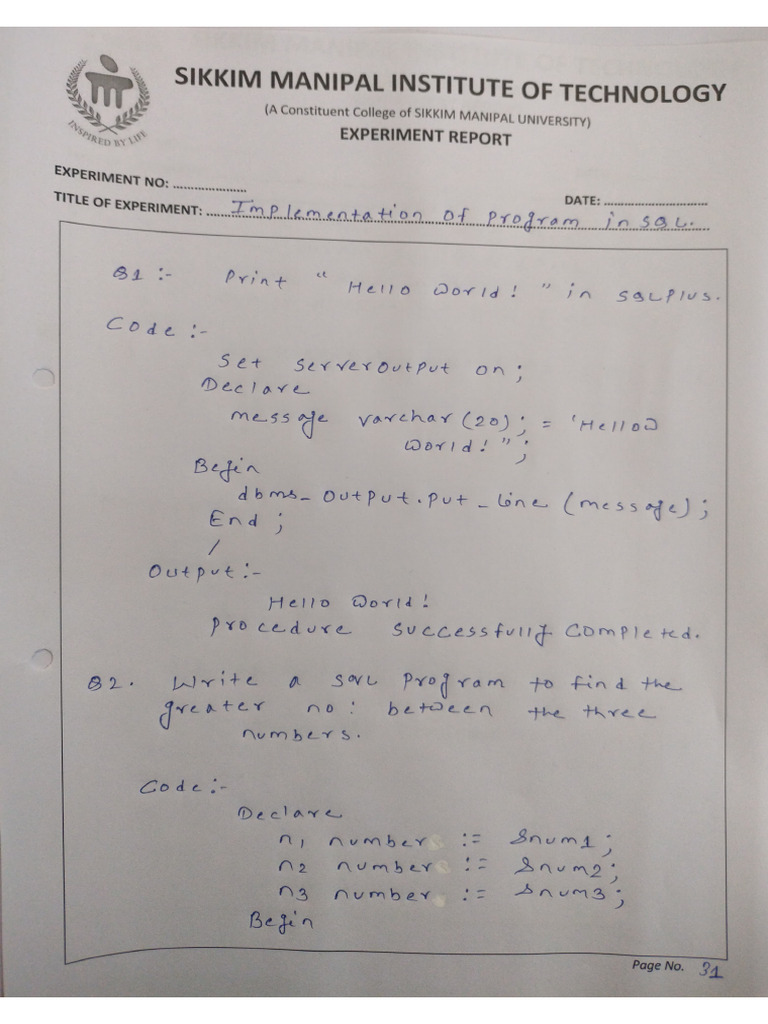 SIKKIM MANIPAL INSTITUTE OF TECHNOLOGY
(A Constituent College of SIKKIM MANIPAL UNIVERSITY)
EXPERIMENT REPORT
INSPIRED BY LIFE
EXPERIMENT NO: ....................
DATE: ............................
TITLE OF EXPERIMENT: ...... Implementation of program in SQL.
Q1 :- Print " Hello World! " in SQLPlus.
Code :-
Set serveroutput on;
Declare
message varchar(20); = 'Hellow
World!";
Begin
dbms_output.put_line (message);
End ;
/
Output:-
Hello World!
Procedure successfully completed.
Q2. Write a SQL program to find the
greater no: between the three
numbers.
Code:-
Declare
n1 number := &num1;
n2 number := &num2;
n3 number := &num3;
Begin
Page No. 31